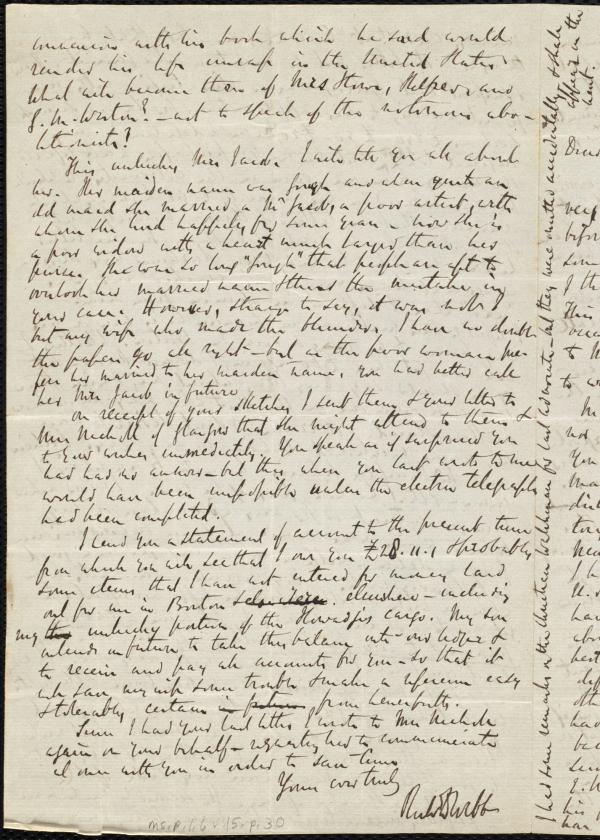 connexion with his book which he said would
render his life unsafe in the United States.
What will become then of Mrs Stowe, Hildreth, and
J. M. Weston? — not to speak of the notorious abo-
litionists?
This unlucky Mrs Jacob I will tell you all about
her. Her maiden name was Gough and when quite an
old maid she married a Mr Jacob, a poor artist, with
whom she lived happily for some years — now she is
a poor widow with a heart much larger than her
purse. She was so long "Gough" that people are apt to
overlook her married name & thence the mistake in
your case. However, strange to say, it was not I
but my wife who made the blunder. I have no doubt
the papers go all right — but as the poor woman pre-
fers her married to her maiden name, you had better call
her Mrs Jacob in future.
On receipt of your sketches I sent them & your letter to
Miss Nicholl of Glasgow that she might attend to them &
to your wishes immediately. You speak as if surprised you
had had no answer — but this, when you last wrote to me
would have been impossible unless the electric telegraph
had been completed.
I send you a statement of account to the present time
from which you will see that I owe you £28.11.1 & probably
some items that I have not entered for money laid
out for me in Boston & elsewhere — including
my unlucky portion of the Howadji's cargo. My son
intends in future to take this balance into our house &
to receive and pay all accounts for you — so that it
will save my wife some trouble & make a reference easy
& tolerably certain from henceforth.
Since I had your last letter I wrote to Miss Nichols
again on your behalf — requesting her to communicate
at once with you in order to save time
Yours very truly
Richd D Webb
ms. p. 66 v. 15. p. 30
I had some remarks on the Christian Watchman for last but wrote — but they were omitted accidentally & shall
appear in the
next.